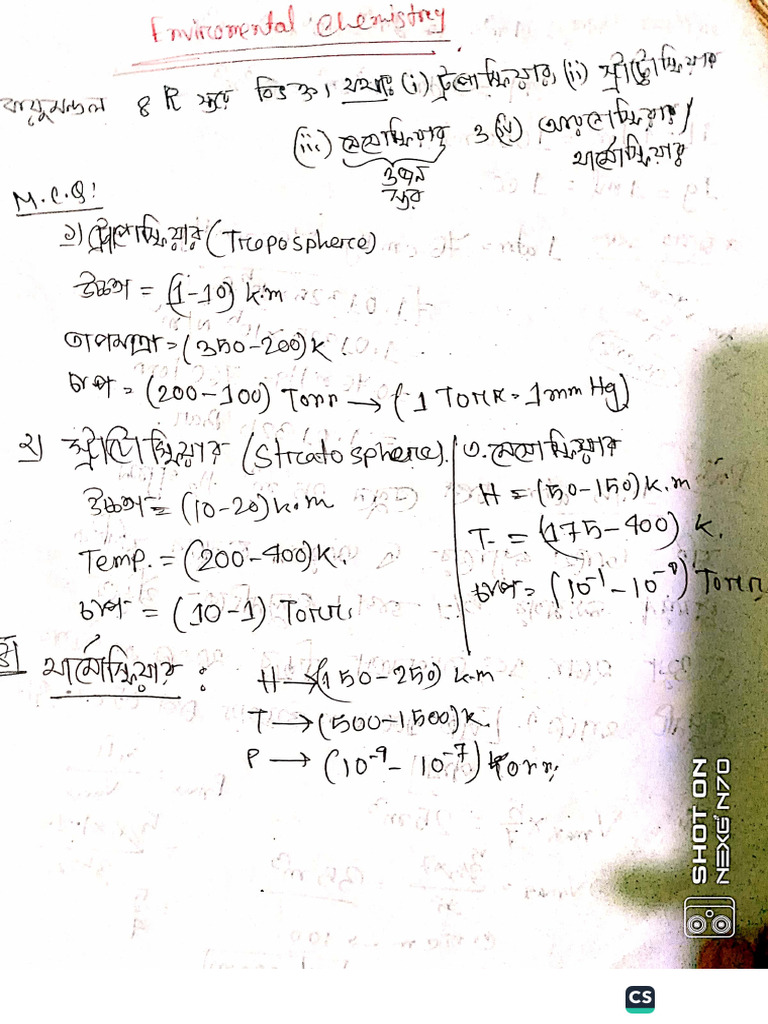 Enviromental Chemistry
বায়ুমন্ডল ৪টি স্তরে বিভক্ত। যথাঃ (i) ট্রপোস্ফিয়ার, (ii) স্ট্রাটোস্ফিয়ার
(iii) মেসোস্ফিয়ার ও (iv) আয়নোস্ফিয়ার/
থার্মোস্ফিয়ার
ওজন
স্তর
M.C.Q:
১) ট্রপোস্ফিয়ার (Troposphere)
উচ্চতা = (1-10) k.m
তাপমাত্রা = (350-200) k
চাপ = (200-100) Torr → (1 Torr = 1mm Hg)
২) স্ট্রাটোস্ফিয়ার (Stratosphere).
উচ্চতা = (10-20) k.m
Temp. = (200-400) k.
চাপ = (10-1) Torr
৩. মেসোস্ফিয়ার
H = (50-150) k.m
T = (175-400) k.
চাপ = Torr
৪) থার্মোস্ফিয়ার :
H → (150-250) k.m
T → (500-1500) k.
P → (10⁻⁹ - 10⁻⁷) Torr
SHOT ON
NEXG N70
CS